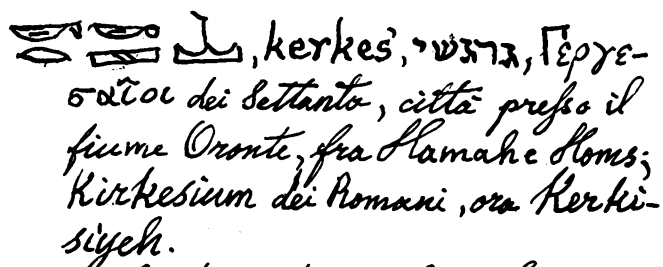 , kerkeš, גרגשי, Γεργε-
σαῖοι dei Settanta, città presso il
fiume Oronte, fra Hamah e Homs;
Kirkesium dei Romani, ora Kerki-
siyeh.